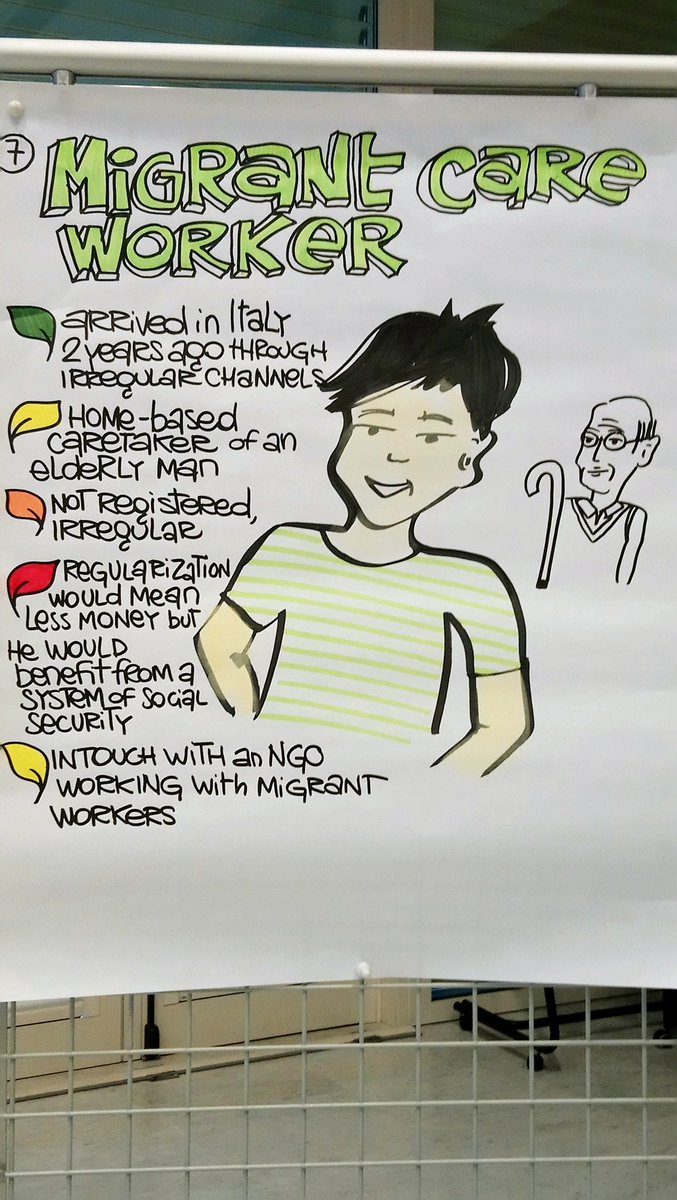 7
MiGRANt CaRe
WORKeR
aRRived in Italy
2 years ago through
irregular channels
Home-based
caretaker of an
elderly man
Not registered,
irregular
Regularization
would mean
less money but
He would
benefit from a
system of social
security
In touch with an NGO
working with migrant
workers